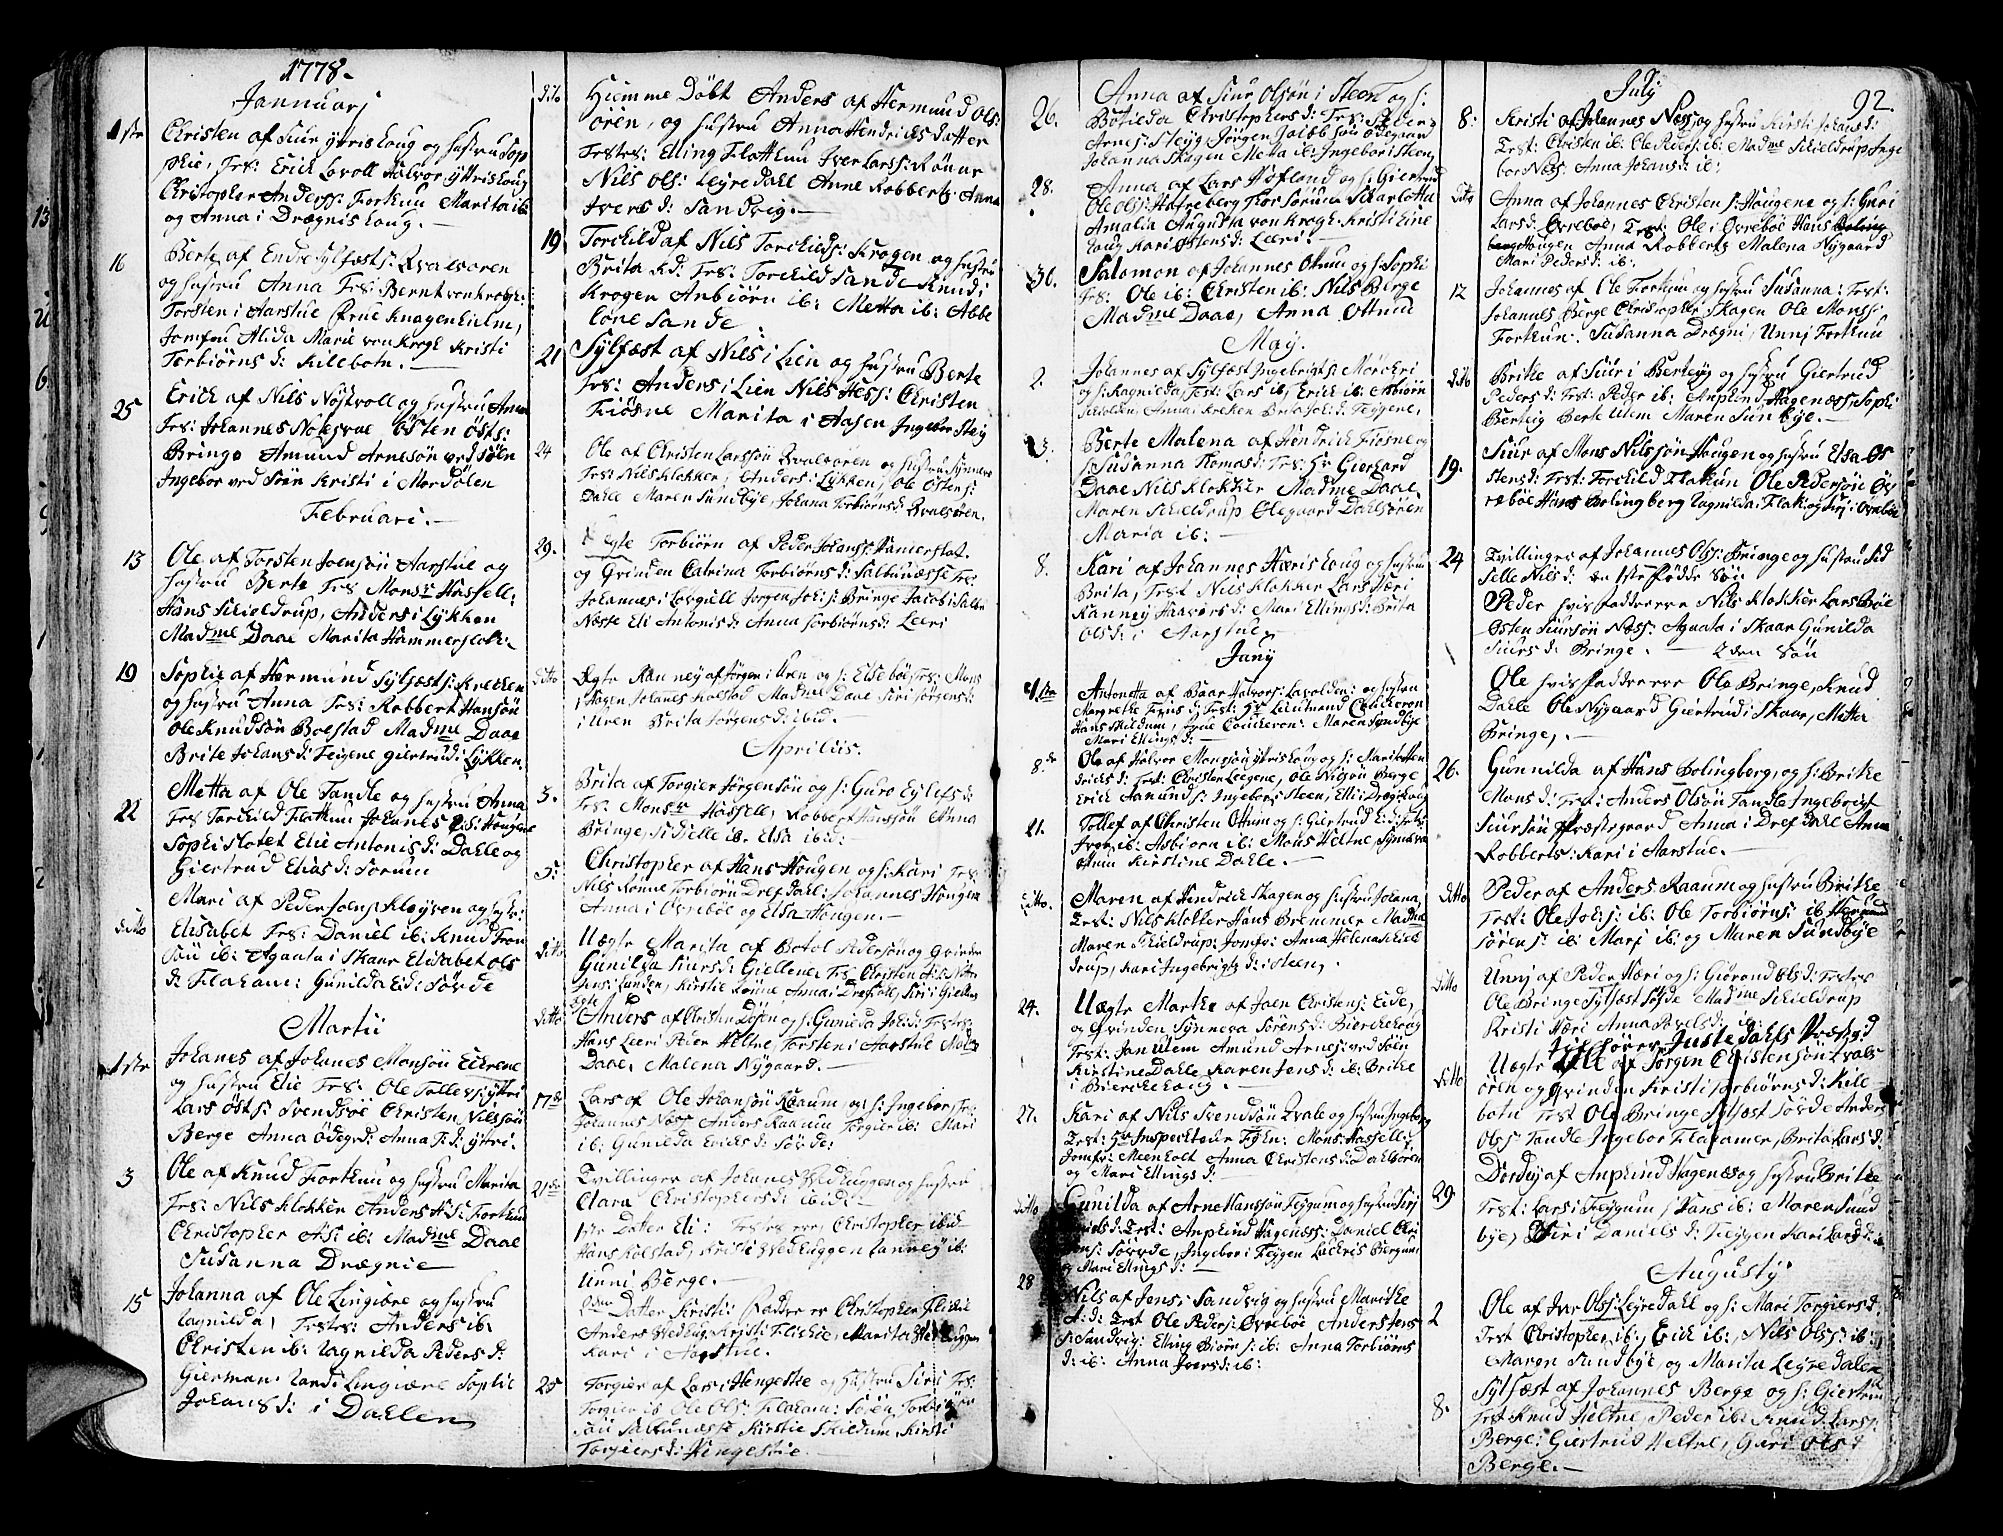 1778.
Januarj
1ste Christen af Siur ytris Loug og hustru Sop-
phie, Frs: Erick Lovoll Halvor ÿttris Loug
Christopher Anderss: Fortkun Marita ib:
og Anna i Drægnis Loug.
16 Berte af Endre Sylfæsts: Qvalsøren
og hustru Anna Frs: Bernt von Krogh
Torsten i Aarstue Frue Knagenhielm,
Jomfru Alida Marie von Krogh Kristi
Torbiørns d: Kilebotn.
25 Erick af Nils Nÿstvoll og hustru Anna
Frs: Johannes Østen Østs:
Bringe Amund Arnesøn ved Søen
Ingebor ved Søen Kristi i Mordølen
Februari.
13 Ole af Torsten Joensøn Aarstue og
hustru Berte Frs Monsr Hassell:
Hans Schieldrup, Anders i Lÿkken
Madme Daae Marita Hammersloth.
19 Sophie af Hermund Sylfæsts: Krecken
og hustru Anna Frs: Robbert Hansøn
Ole Knudsøn Bolstad Madme Daae
Brite Johans d: Feigene Giertrud i Lÿkken.
22 Metta af Ole Tandle og hustru Anna
Frs Torchild Flattun Johanes Hougene
Sophi Slotet Elie Antonis d: Dahle og
Giertrud Elias d: Sorum
ditto Mari af Peder Joens Kleÿven og hustr:
Elisabet Frs: Daniel ib: Knud Fron
søn ib: Agaata i Skaar Elisabet Ols
d: Flaham: Gunilda Eid: Sørde
Martii
1ste Johanes af Johanes Monsøn Eikrene
og hustru Elie Frs: Ole Tollefs: ÿttri
Lars Østs: Svendsøe Christen Nilssøn
Berge Anna Ødegrd: Anna ÿtri.
3 Ole af Knud Fortkun og hustru Marita
Frs: Nils Klokker Anders Fortkun
Christopher ib: Madme Daae
Susanna Drægnie
15 Johanna af Ole Lingiøre og hustru
Ragnilda, Frstrs: Anders ib:
Christen ib: Ragnilda Peders d:
Gierman: Randi Lingiære Sophie
Johans d: i Dahlen
dito Hiemme Døbt Anders af Hermund Ols:
ören, og hustru Anna Hendrichs datter
Frstrs: Elling Flattun Iver Lars: Rønar
Nils Ols: Leÿredahl Anne Robberts: Anna
Ivers d: Sandvig.
19 Torchild af Nils Torchilds: Krogen og hustru
Brita Frs: Torchild Sande Knud i
Krogen Anbiørn ib: Metta ib: Abbe
lone Sande.
21 Sylfæst af Nils i Lien og hustru Berte
Frs: Anders i Lien Nils Hess: Christen
Fiøsne Marita i Aasen Ingebor Steÿ
24 Ole af Christen Larssøn Qvalsøren og hustru Synneve
Frs: Nils Klokker, Anders i Lÿkken, Ole Østens:
Dahle Maren Sundbÿe, Johana Torbiørns d: Qvalsøren.
29. Uegte Torbiørn af Peder Johans: Hamerslot.
og Qvinden Catrina Torbiørns d: Salbunæsse Frs:
Johannes i Løvgiell Jørgen Joh: s: Bringe Jacob i Salbu
Næste Eli Antonis d: Anna Torbiørns d: Leeri
ditto Egte Ranneÿ af Jörgen i Uren og h: Else Frs: Mons
i Hagen Johanes Kolstad Madme Daae Siri Jørgens d:
i Uren Brita Jørgens d: ibid.
Aprilis.
3. Brita af Torgier Jørgensøn og h: Guro Eylefs d:
Frs: Monsr Hassell, Robbert Hanssøn Anna
Bringe, Sidselle ib. Elsa ibid:
5: Christopher af Hans Hougen og h: Kari Frs
Nils Rønne Torbiørn Drefdahl: Johannes Hougen
Anna i Øvrebøe og Elsa Hougen.
ditto Uægte Marita af Botol Pedersøn og Qvinden
Gunilda Siurs d: Giellene Frs: Christen
Jens: Lunden, Kirstie Rønne Anna i Drefdahl, Siri i Giellen
ditto Egte Anders af Christen Døsen og h: Gunilda Joh: d: Frstrs:
Hans Leeri Peder Heltne, Torsten i Aarstue Mad:
Daae, Malena Nÿgaard.
17de Lars af Ole Johansøn Raaum, og h: Ingebor Frs:
Johannes Næss Anders Raaum Torgier ib: Mari
ib: Gunilda Ericks d: Sørde:
21de Tvillinger af Johanes Vedhuggen og hustru
Clara Christophers d: ibid:
1ste Datter Eli: Frstrs ere, Christopher ibid
Hans Kolstad, Kristi Vedhuggen Ranneÿ ib:
Unni Berge.
2den Datter Kristi: Fadder er Christopher Flickie
Anders Vedhug: Kristi Flickie, Marita Vedhuggen
Kari i Aarstue.
25 Torgier af Lars i Hengestie og hustru Siri Frs:
Torgier ib Ole Ols: Flaham: Søren Torbiørn
søn Salbunæsse Kirstie Skieldum, Kirsti
Torgiers d: Hengestie.
26. Anna af Siur Olsøn i Steen og h:
Botilda Christophers d: Frs: Peder
Arnes: Steÿg Jørgen Jacobsøn Ødegaard
Johanna Skagen Metta ib: Ingebor i Steen
28. Anna af Lars Høÿland og h: Giertrud
Ole Ols: Hafreberg Thor Sorum Skarlotta
Amalia Augusta von Krogh Kristi Eine
Loug Kari Østens d: Leeri.
30. Salomon af Johannes Ottum og h: Sophi
Frs: Ole ib: Christen ib: Nils Berge
Madme Daae, Anna Ottum
Maÿ.
2. Johannes af Sylfæst Ingebrigts: Mørckri
og h: Ragnilda, Frst: Lars ib, Erick ib: Asbiørn
Skiolden, Anna i Kreken Brita Joh: d: Feÿgene,
3. Berte Malena af Hendrick Fiøsne og
h: Susanna Thomas d: Frs: Hr Gierhard
Daae Nils Klokker Madme Daae,
Maren Schieldrup Olegaard Dahlsøren
Maria ib:
8. Kari af Johannes Hæris Loug og hustru
Brita, Frst Nils Klokker Lars Hæri
Ranneÿ Haavors d: Mari Ellings d: Brita
Ols d: i Aarstue.
Junÿ
1ste Antonetta af Baar Halvors: Lavolden: og hustru
Margrethe Frs: Hr Lieutnand Coucheron
Hans Skieldum, Frue Coucheron: Maren Sundbye
Mari Ellings d:
8de Ole af Halvor Monssøn ÿttris Loug og h: Marita Hen
dricks d: Frst: Christen Leegene, Ole Nilsøn Berge
Erick Amund s: Ingebor i Steen, Elli i Drægis Loug
21. Tollef af Christen Ottum og h: Giertrud Eids: Frstrs:
Iver ib: Asbiørn ib: Mons Heltne, Synneva
Ottum Kirstine Dahle.
ditto. Maren af Hendrick Skagen og hustru Johana,
Frst: Nils Klokker Hans Bremmer Madme
Maren Schieldrup: Jomfr: Anna Helena Schiel
drup, Kari Ingebrigts d: i Steen,
24. Uægte Marthe af Joen Christens: Eide,
og Qvinden Synneva Sørens d: Bierckehoug
Frst: Jan Ulem Amund Arnes: ved Søen
Kirstine Dahle, Karen Jens d: ib: Brithe
i Bierckehoug.
27. Kari af Nils Svendsøn Qvale og hustru Ingeborg
Frst: Hr Inspecteur Fÿen: Mons: Hassell:
Jomfr: Meenholt Anna Christens d: Dahlsören
og Mari Ellings d:
ditto Gunilda af Arne Hanssøn Feÿgum og hustru Siri
Niels d: Frst: Anphind Hagenæs: Daniel Chri
stens: Sørde, Ingebor i Feÿgen Luckris Bergum
og Mari Ellings d:
28 Nils af Jens i Sandvig og hustru Marithe
Frst Ole Peders: Øvrebøe Anders Jens
s: Sandvig: Elling Biørn s: ib: Anna Torbiørns
d: ib: Anna Ivers d: ib:
Julÿ 92.
8: Kristi af Johannes Næss og hustru Kirsti Johans d:
Frst: Christen ib: Ole Peders: ib: Madme Schieldrup Inge
bor Næss: Anna Johans d: ib:
ditto Anna af Johannes Christen s: Hougene og h: Guri
Lars d: Øvrebøe, Frst: Ole i Øvrebøe Hans
Hougen Anna Robberts Malena Nÿgaard
Mari Peders d: ib:
12 Johannes af Ole Fortkun og hustru Susanna: Frst:
Johannes Berge Christopher Skagen Ole Monss:
Fortkun: Susanna Drægni, Unni Fortkun
dito Brithe af Siur i Berteig og hustru Giertrud
Peders d: Frst: Peder ib: Anphind Hagenæss, Sophi
Berteig Berte Ulem Maren Sundbÿe.
19. Siur af Mons Nilssøn Hougen og hustru Elsa Øs
stens d: Frst: Torchild Flahun Ole Pedersøn Øv
rebøe Hans Bolingberg Ragnilda i Flak: og Siri i Øvrebøe
24 Tvillinger af Johannes Ols: Bringe og hustru Sid
selle Nils d: en 1ste fødde Søn
Peder hvis Faddrerer Nils Klokker Lars Bøe
Østen Siursøn Næss: Agaata i Skaar Gunilda
Siurs d: Bringe. 2den Søn
Ole hvis Faddrerer Ole Bringe, Knud
Dahle Ole Nÿgaard Giertrud i Skaar, Metta
Bringe,
26. Gunnilda af Hans Bolingberg, og h: Brithe
Mons d: Frst: Anders Olsøn Tandle Ingebrigt
Siursøn Præstegaard Anna i Drefdahl Anna
Robberts: Kari i Aarstue.
ditto Peder af Anders Raaum og hustru Brithe
Frst: Ole Johs: ib: Ole Torbiørns: ib: Hermund
Sørens: ib: Mari ib: og Maren Sundbÿe
ditto Unnj af Peder Hæri og h: Giørond Ols d: Frstrs
Ole Bringe Sylfæst Sørde Madme Schieldrup
Kristi Hæri Anna Povels d: ib:
tilhører Justedahls Præstgd
ditto Uægte af Jørgen Christensøn Qvals
ören og Qvinden Kristi Torbiørns d: Kile
botn Frst Ole Bringe Sylfæst Sørde Anders
Ols: Tandle Ingebor Flahamer, Brita Lars d:
29. Dordej af Anphind Hagenæs og hustru Brithe
Frst: Lars i Feÿgum, Hans ib: Maren Sund
bÿe, Siri Daniels d: Feÿgen Kari Lars d: ib
Augustÿ
2 Ole af Ivar Ols: Leÿredahl og h: Mari Torgiers d:
Frst Christopher ib:, Erick ib:, Nils Ols: ib:
Maren Sundbÿe, og Marita Leÿredahlen
8. Sylfæst af Johannes Berge og h: Giertrud
Frst Knud Heltne, Peder ib: Knud Lars:
Berge: Giertrud Heltne, Guri Ols d
Berge.